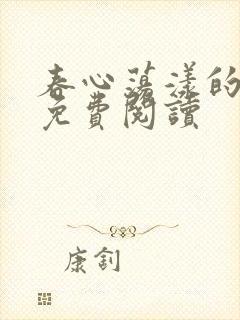 春心蕩漾的
免費閱讀
康釗